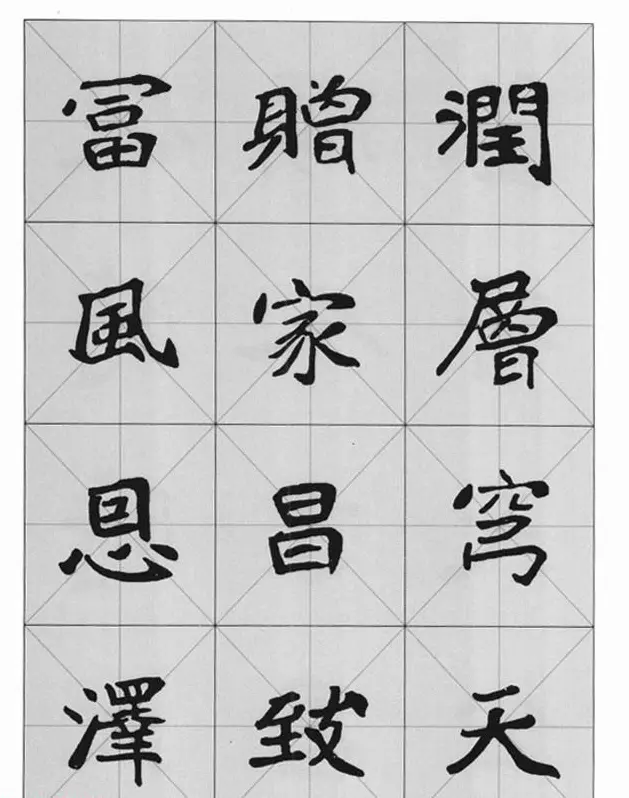 潤層穹天
贈家昌致
冨風恩澤